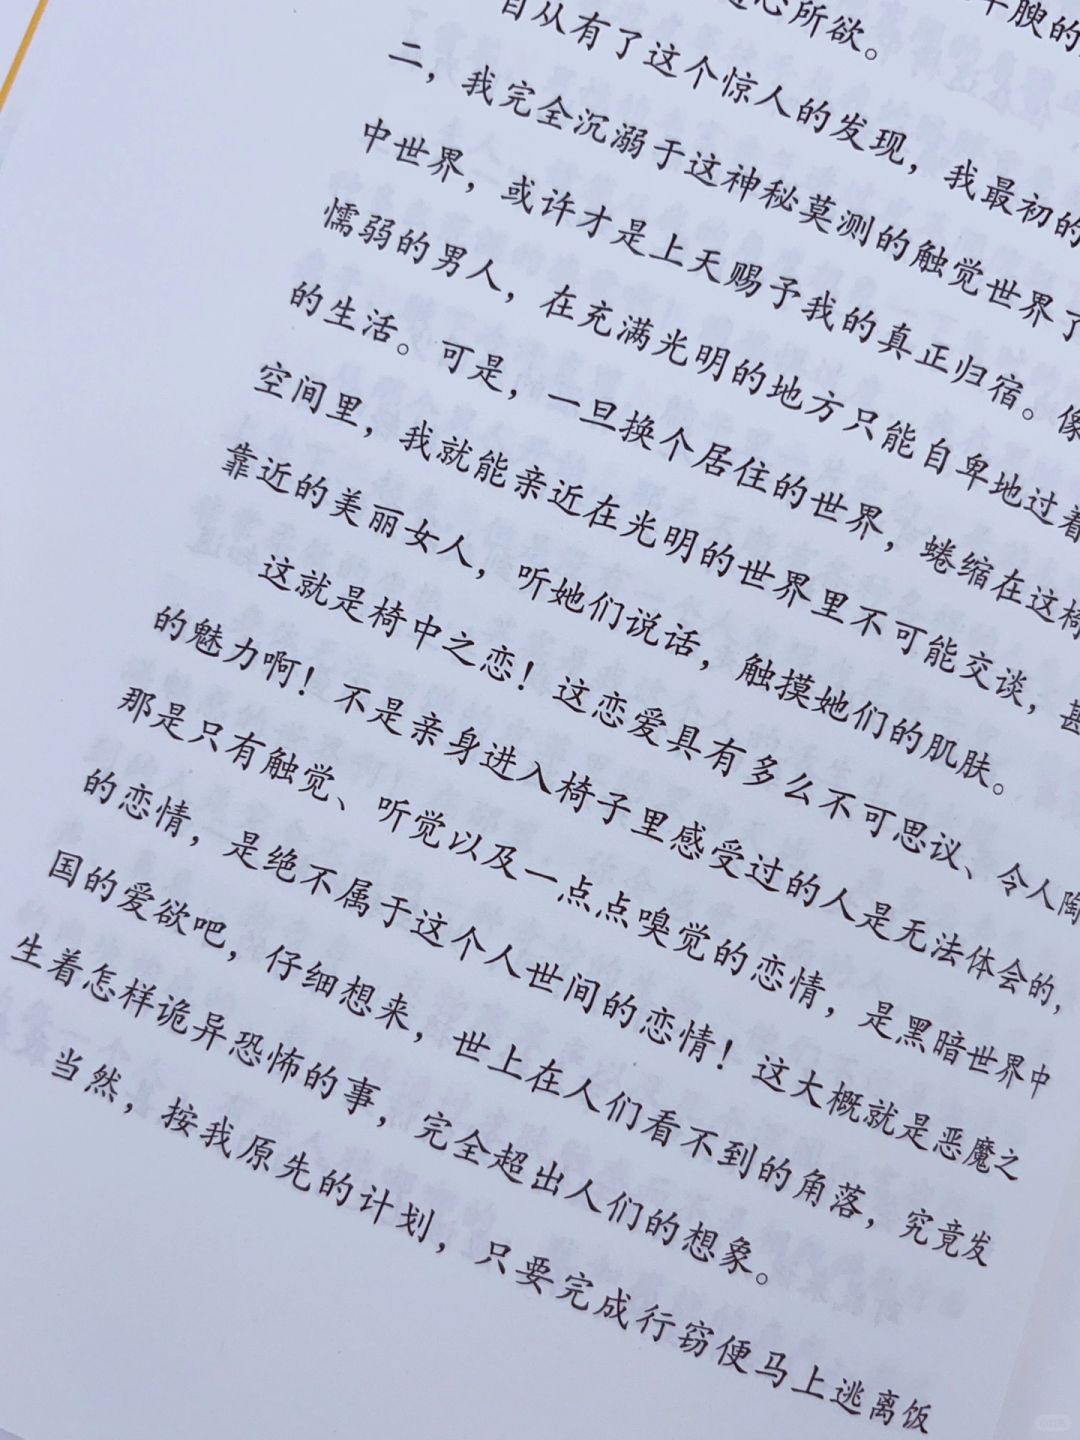 心所欲。
自从有了这个惊人的发现，我最初的
二，我完全沉溺于这神秘莫测的触觉世界了
中世界，或许才是上天赐予我的真正归宿。像
懦弱的男人，在充满光明的地方只能自卑地过着
的生活。可是，一旦换个居住的世界，蜷缩在这椅
空间里，我就能亲近在光明的世界里不可能交谈，甚
靠近的美丽女人，听她们说话，触摸她们的肌肤。
这就是椅中之恋！这恋爱具有多么不可思议、令人陶
的魅力啊！不是亲身进入椅子里感受过的人是无法体会的，
那是只有触觉、听觉以及一点点嗅觉的恋情，是黑暗世界中
的恋情，是绝不属于这个人世间的恋情！这大概就是恶魔之
国的爱欲吧，仔细想来，世上在人们看不到的角落，究竟发
生着怎样诡异恐怖的事，完全超出人们的想象。
当然，按我原先的计划，只要完成行窃便马上逃离饭